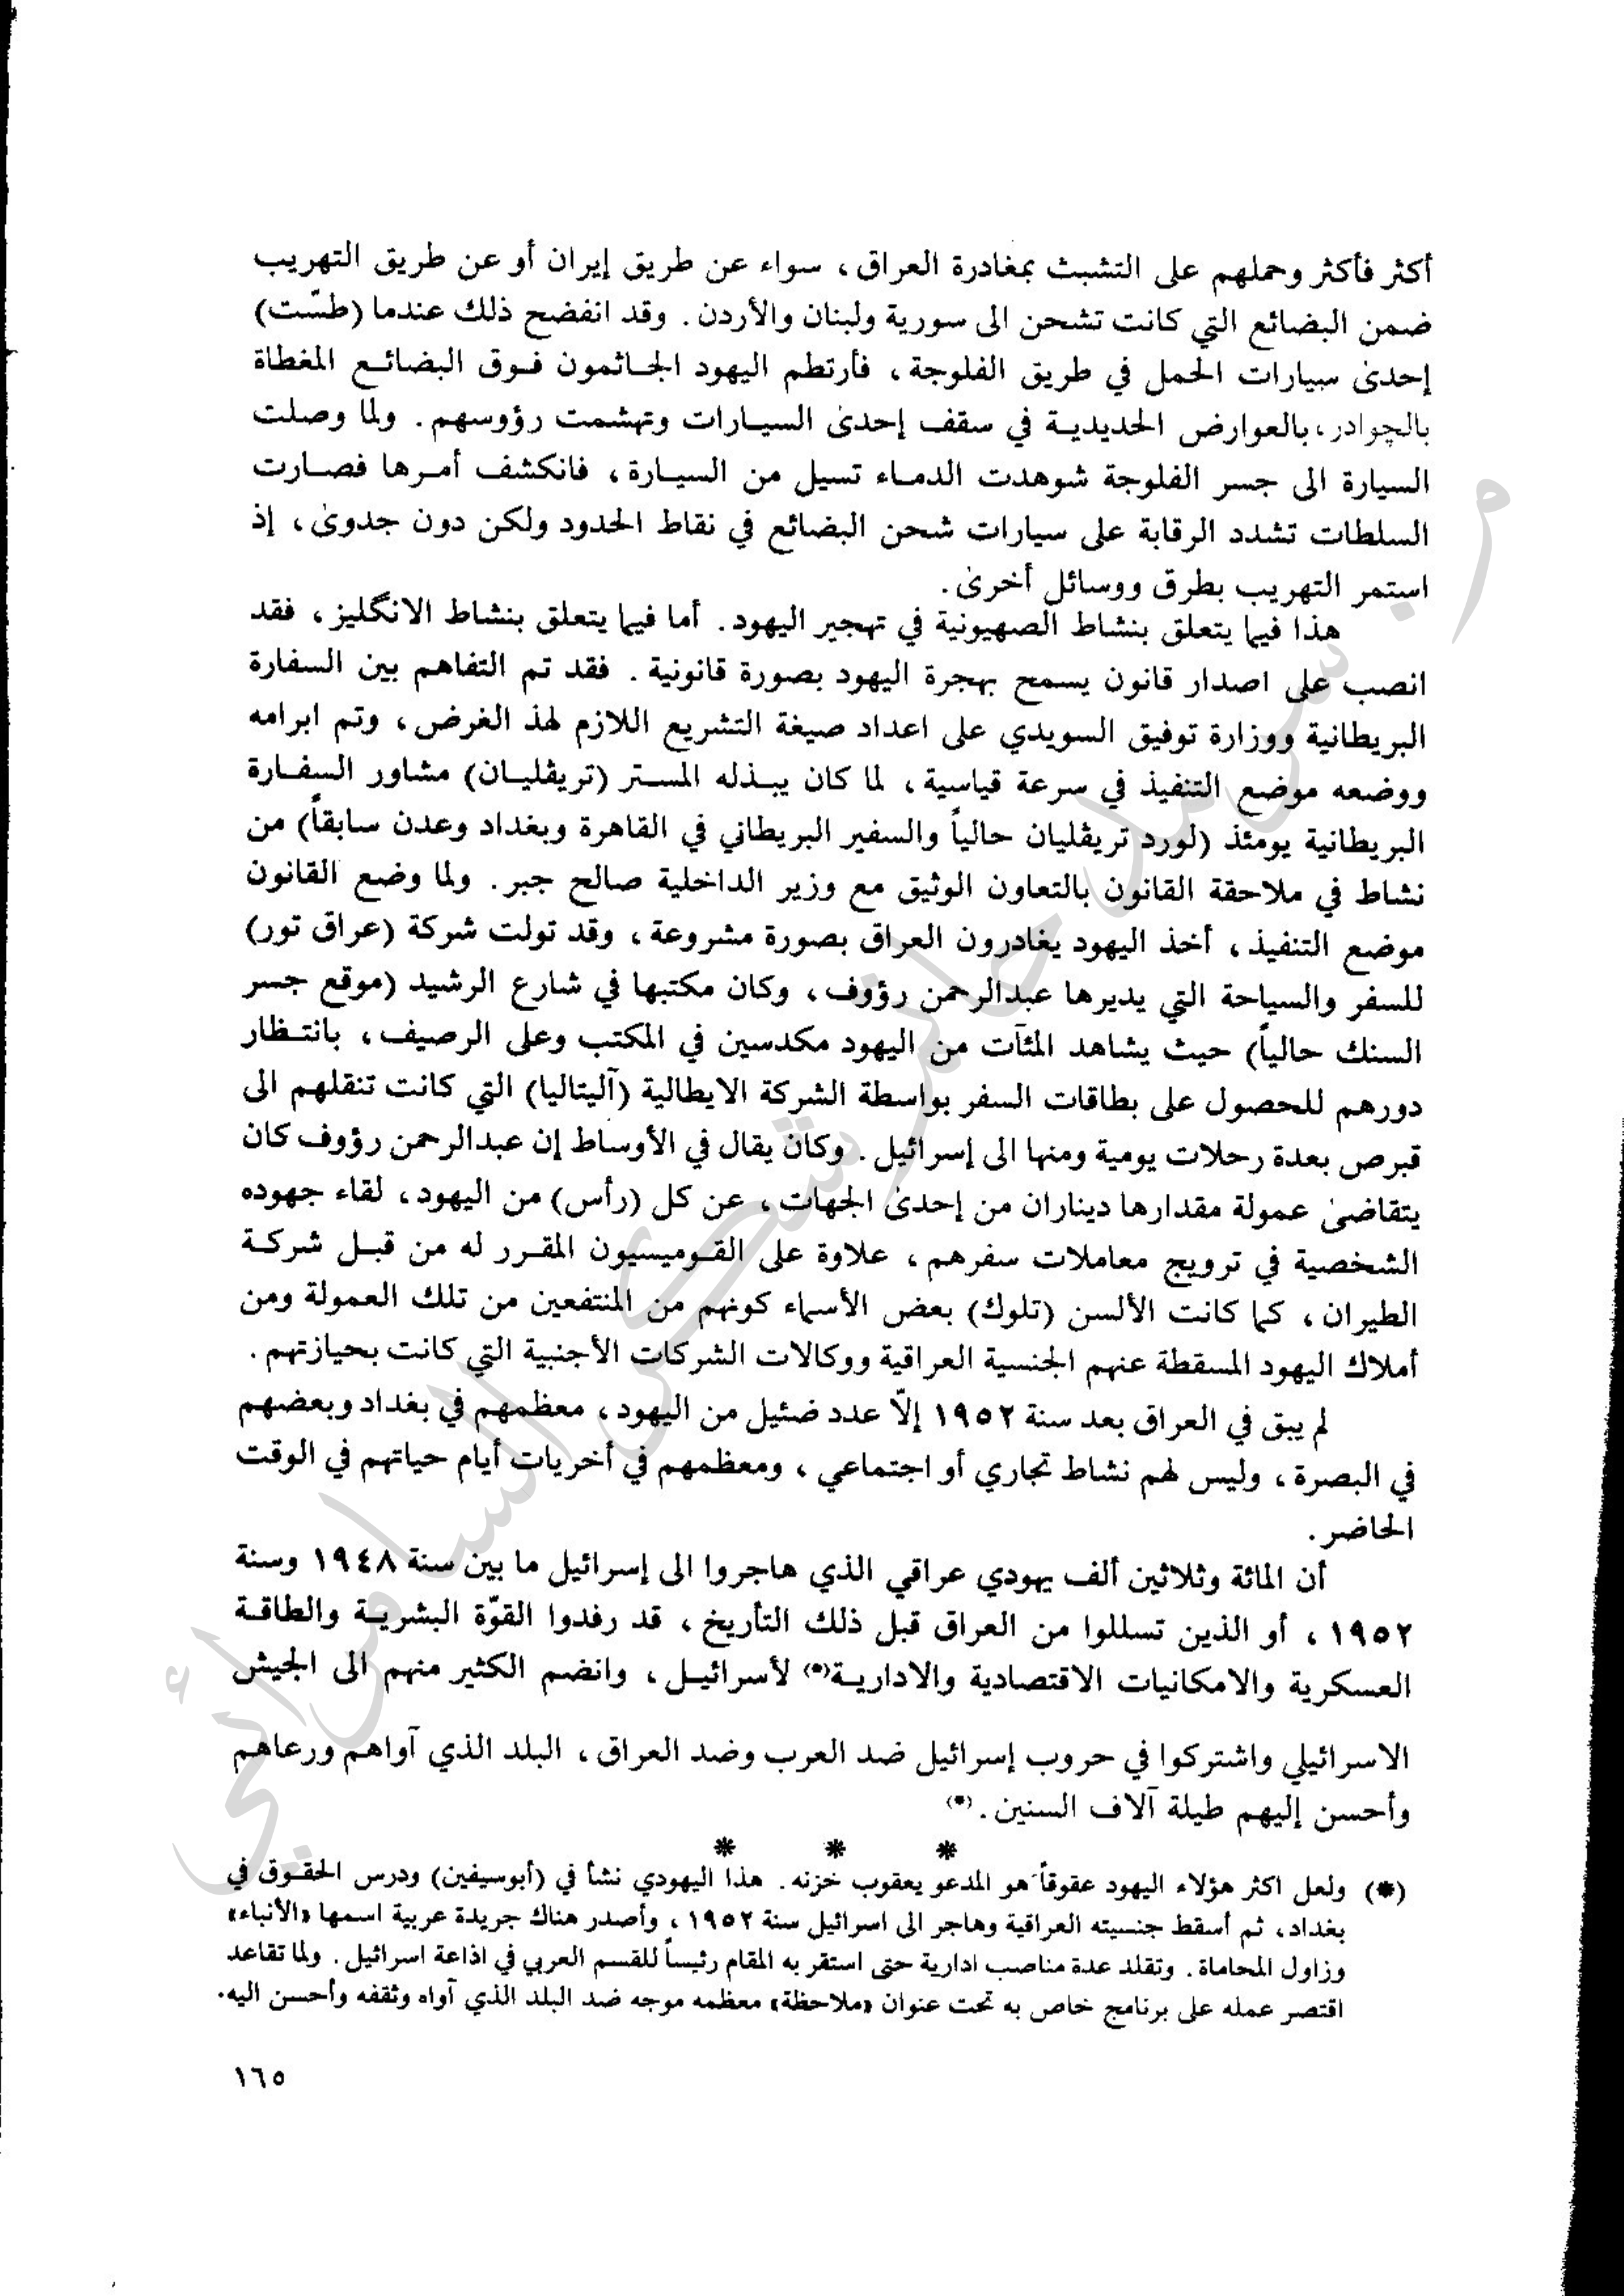 أكثر فأكثر وحملهم على التشبث بمغادرة العراق، سواء عن طريق إيران أو عن طريق التهريب
ضمن البضائع التي كانت تشحن الى سورية ولبنان والأردن. وقد انفضح ذلك عندما (طسّت)
إحدىٰ سيارات الحمل في طريق الفلوجة، فأرتطم اليهود الجاثمون فوق البضائع المغطاة
بالچوادر، بالعوارض الحديدية في سقف إحدىٰ السيارات وتهشمت رؤوسهم. ولما وصلت
السيارة الى جسر الفلوجة شوهدت الدماء تسيل من السيارة، فانكشف أمرها فصارت
السلطات تشدد الرقابة على سيارات شحن البضائع في نقاط الحدود ولكن دون جدوىٰ، إذ
استمر التهريب بطرق ووسائل أخرىٰ.
هذا فيما يتعلق بنشاط الصهيونية في تهجير اليهود. أما فيما يتعلق بنشاط الانگليز، فقد
انصب على اصدار قانون يسمح بهجرة اليهود بصورة قانونية. فقد تم التفاهم بين السفارة
البريطانية ووزارة توفيق السويدي على اعداد صيغة التشريع اللازم لهذ الغرض، وتم ابرامه
ووضعه موضع التنفيذ في سرعة قياسية، لما كان يبذله المستر (تريڤليان) مشاور السفارة
البريطانية يومئذ (لورد تريڤليان حالياً والسفير البريطاني في القاهرة وبغداد وعدن سابقاً) من
نشاط في ملاحقة القانون بالتعاون الوثيق مع وزير الداخلية صالح جبر. ولما وضع القانون
موضع التنفيذ، أخذ اليهود يغادرون العراق بصورة مشروعة، وقد تولت شركة (عراق تور)
للسفر والسياحة التي يديرها عبدالرحمن رؤوف، وكان مكتبها في شارع الرشيد (موقع جسر
السنك حالياً) حيث يشاهد المئآت من اليهود مكدسين في المكتب وعلى الرصيف، بانتظار
دورهم للحصول على بطاقات السفر بواسطة الشركة الايطالية (آليتاليا) التي كانت تنقلهم الى
قبرص بعدة رحلات يومية ومنها الى إسرائيل. وكان يقال في الأوساط إن عبدالرحمن رؤوف كان
يتقاضىٰ عمولة مقدارها ديناران من إحدىٰ الجهات، عن كل (رأس) من اليهود، لقاء جهوده
الشخصية في ترويج معاملات سفرهم، علاوة على القوميسيون المقرر له من قبل شركة
الطيران، كما كانت الألسن (تلوك) بعض الأسماء كونهم من المنتفعين من تلك العمولة ومن
أملاك اليهود المسقطة عنهم الجنسية العراقية ووكالات الشركات الأجنبية التي كانت بحيازتهم.
لم يبق في العراق بعد سنة ١٩٥٢ إلّا عدد ضئيل من اليهود، معظمهم في بغداد وبعضهم
في البصرة، وليس لهم نشاط تجاري أو اجتماعي، ومعظمهم في أخريات أيام حياتهم في الوقت
الحاضر.
أن المائة وثلاثين ألف يهودي عراقي الذي هاجروا الى إسرائيل ما بين سنة ١٩٤٨ وسنة
١٩٥٢، أو الذين تسللوا من العراق قبل ذلك التأريخ، قد رفدوا القوّة البشرية والطاقة
العسكرية والامكانيات الاقتصادية والادارية(*) لأسرائيل، وانضم الكثير منهم الى الجيش
الاسرائيلي واشتركوا في حروب إسرائيل ضد العرب وضد العراق، البلد الذي آواهم ورعاهم
وأحسن إليهم طيلة آلاف السنين.(*)
* * *
(*) ولعل اكثر هؤلاء اليهود عقوقاً هو المدعو يعقوب خزنه. هذا اليهودي نشأ في (أبوسيفين) ودرس الحقوق في
بغداد، ثم أسقط جنسيته العراقية وهاجر الى اسرائيل سنة ١٩٥٢، وأصدر هناك جريدة عربية اسمها «الأنباء»
وزاول المحاماة. وتقلد عدة مناصب ادارية حتى استقر به المقام رئيساً للقسم العربي في اذاعة اسرائيل. ولما تقاعد
اقتصر عمله على برنامج خاص به تحت عنوان «ملاحظة» معظمه موجه ضد البلد الذي آواه وثقفه وأحسن اليه.
١٦٥